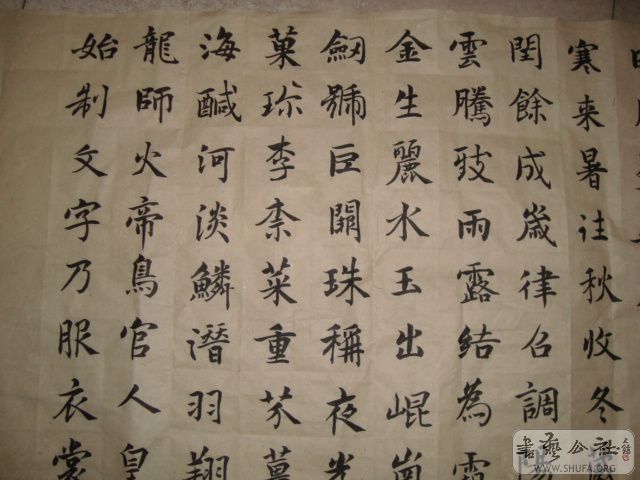 寒来暑往秋收冬
閏餘成歲律召調
雲騰致雨露結為霜
金生麗水玉出崐崗
劒號巨闕珠稱夜光
菓珎李柰菜重芥薑
海鹹河淡鱗潛羽翔
龍師火帝鳥官人皇
始制文字乃服衣裳
書藝公社
WWW.SHUFA.ORG